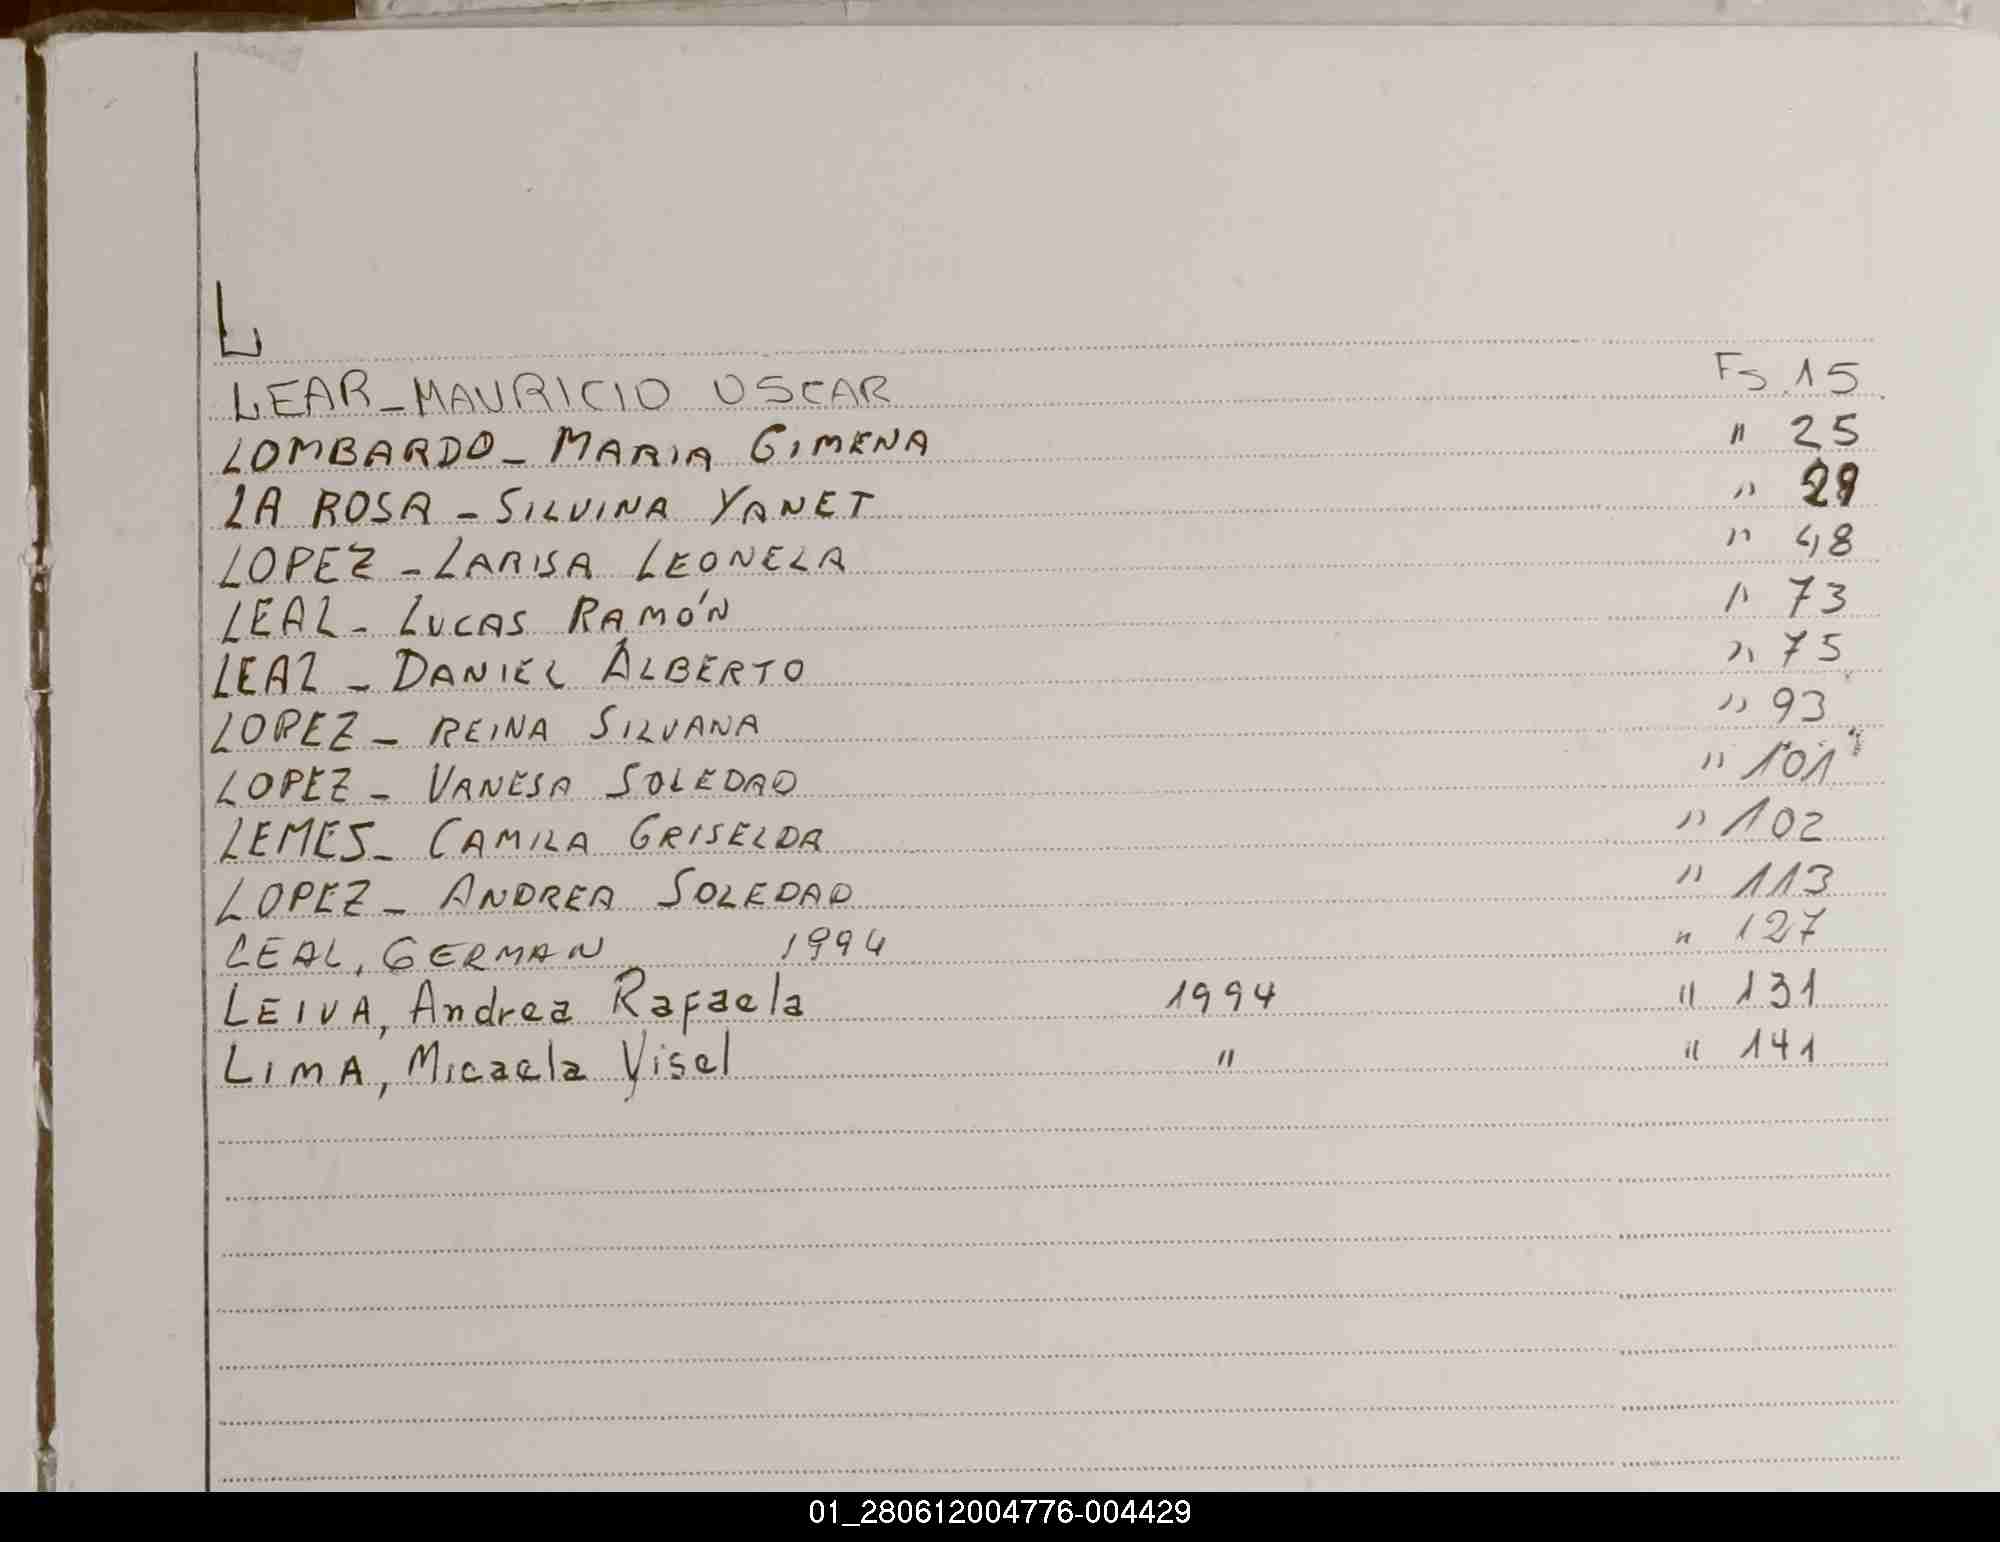 L
LEAR - MAURICIO OSCAR Fs. 15
LOMBARDO - MARIA GIMENA " 25
LA ROSA - SILVINA YANET " 29
LOPEZ - LARISA LEONELA " 48
LEAL - LUCAS RAMÓN " 73
LEAL - DANIEL ALBERTO " 75
LOPEZ - REINA SILVANA " 93
LOPEZ - VANESA SOLEDAD " 101
LEMES - CAMILA GRISELDA " 102
LOPEZ - ANDREA SOLEDAD " 113
LEAL, GERMAN 1994 " 127
LEIVA, Andrea Rafaela 1994 " 131
LIMA, Micaela Yisel " " 141
01_280612004776-004429